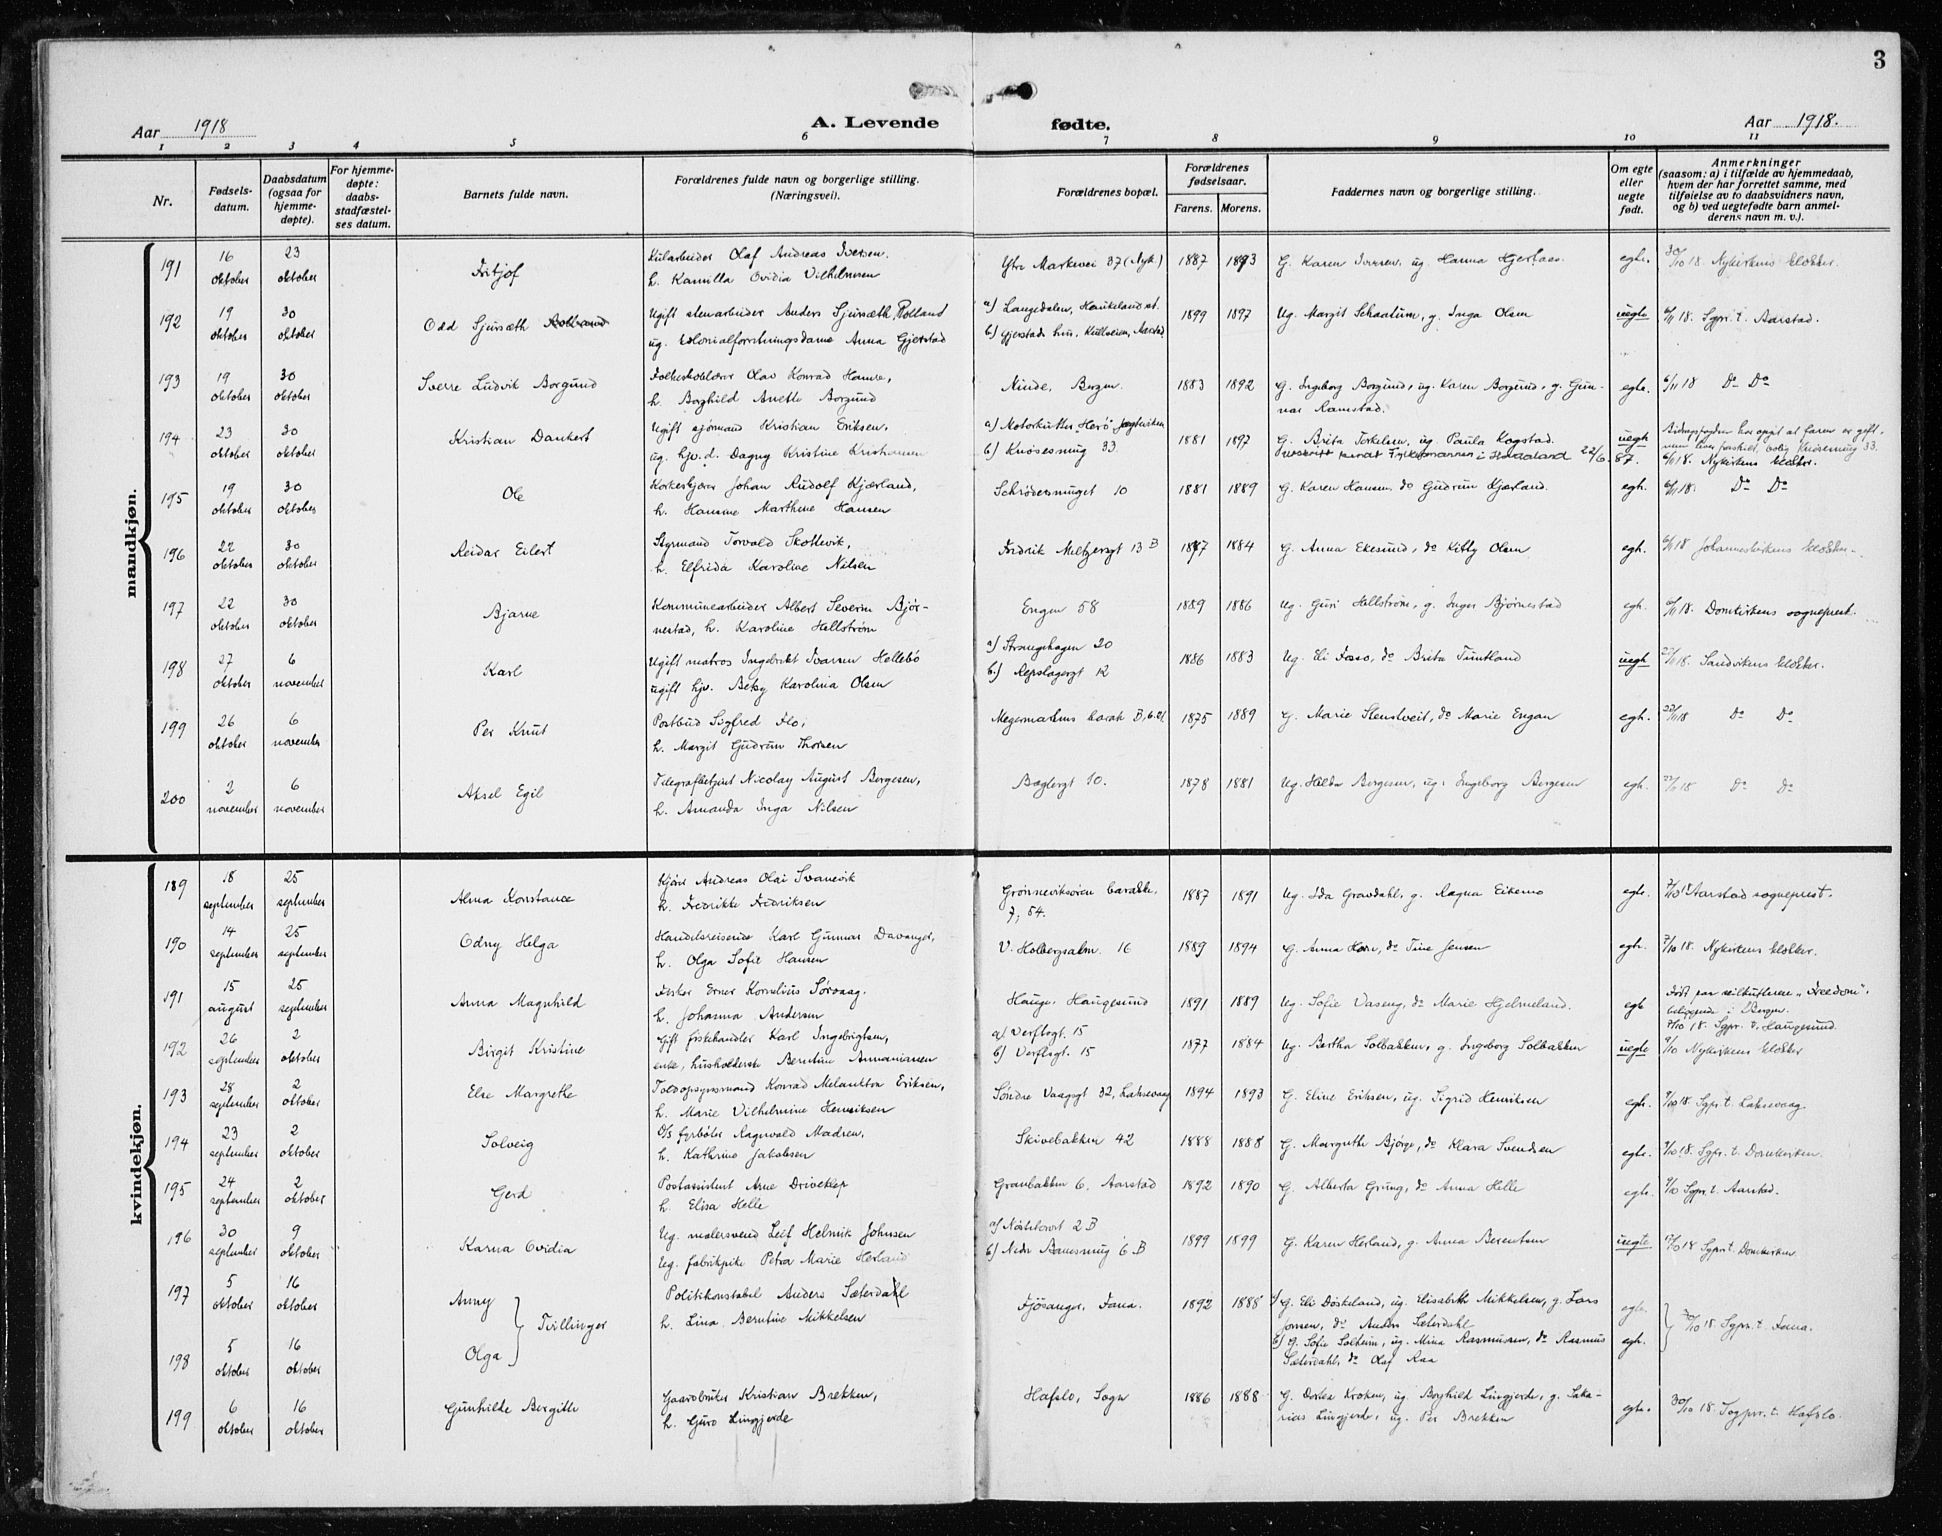 3
Aar 1918
A. Levende
fødte.
Aar 1918.
1 2 3 4 5 6 7 8 9 10 11
Nr.
Fødsels-
datum.
Daabsdatum
(ogsaa for
hjemme-
døpte).
For hjemme-
døpte:
daabs-
stadfæstel-
ses datum.
Barnets fulde navn.
Forældrenes fulde navn og borgerlige stilling.
(Næringsvei).
Forældrenes bopæl.
Forældrenes
fødselsaar.
Farens. Morens.
Faddernes navn og borgerlige stilling.
Om egte
eller
uegte
født.
Anmerkninger
(saasom: a) i tilfælde av hjemmedaab,
hvem der har forrettet samme, med
tilføielse av to daabsvidners navn,
og b) ved uegtefødte barn anmel-
derens navn m. v.).
mandkjøn.
191 16 23 Fritjof Kularbeider Olaf Andreas Iversen. Ytre Markevei 37 (Nyk.) 1887 1893 G. Karen Iversen, ug. Hanna Hjertaas. egte. 30/10 18. Nykirkens klokker.
oktober oktober h. Kamilla Ovidia Vilhelmsen
192 19 30 Odd Sjursæth Ugift stenarbeider Anders Sjursæth, Rolland a) Langedalen, Haukeland st. 1899 1897 Ug. Margit Schaatum, g. Inga Olsen uegte 6/11 18. Sgpr. t. Aarstad.
oktober oktober ug. kolonialforretningsdame Anna Gjerstad b) Gjerstads hus, Aarstad
193 19 30 Sverre Ludvik Borgund Folkeskolelærer Olav Konrad Hamre, Bergen. 1883 1892 G. Ingeborg Borgund, ug. Karen Borgund, g. Gun- egte. 6/11 18 Do Do
oktober oktober h. Borghild Anette Borgund nar Ramstad.
194 23 30 Kristian Dankert Ugift sjømand Kristian Eriksen, a) Motorkutter Herø 1881 1897 G. Brita Torkelsen, ug. Paula Kogstad. uegte
oktober oktober ug. hj.v.d. Dagny Kristine Kristiansen b) Knøsesmug 33 Fylkesmannen i Hordaland 22/6-87. 6/11 18. Nykirkens klokker.
195 19 30 Ole Johan Rudolf Kjærland, Schrødersmuget 10 1881 1889 G. Karen Hansen, do Gudrun Kjærland. egte. 6/11 18. Do Do
oktober oktober h. Hansine Marthine Hansen
196 22 30 Reidar Eilert Styrmand Torvald Skottevik, Fredrik Meltzersgt 13 B 1887 1884 G. Anna Ekesund, do Kitty Olsen egte. 6/11 18 Johanneskirkens klokker.
oktober oktober h. Elfrida Karoline Nilsen
197 22 30 Bjarne Kommunearbeider Albert Severin Bjør- Engen 58 1889 1886 Ug. Guri Hellstrøm, g. Inger Bjørnestad egh. 6/11 18. Domkirkens sogneprest.
oktober oktober nestad, h. Karoline Hellstrøm
198 27 6 Karl Ugift matros Ingebrikt Ivarsen Hellebø a) Strangehagen 20 1886 1883 Ug. Eli Faso, do Brita Timtland uegte 22/11 18. Sandvikens klokker.
oktober november ugift hjv. Betsy Karolina Olsen b) Repslagergt 12
199 26 6 Per Knut Postbud Sigfred Flo, barak B, 1875 1889 G. Marie Stenstveit, do Marie Engan egh. 22/11 18 Do Do
oktober november h. Margit Gudrun Thorsen
200 2 6 Aksel Egil Telegrafbetjent Nicolay August Bergesen, Baglergt 10. 1878 1881 Ug. Hilda Bergesen, ug. Ingeborg Bergesen egh. 22/11 18 Do Do
november november h. Amanda Inga Nilsen
kvindekjøn.
189 18 25 Alma Konstance Kjører Andreas Olai Svanevik Grønneviksøren barakke, 1887 1891 Ug. Ida Gravdahl, g. Ragna Eikemo egte. 7/10 18 Aarstad sogneprest.
september september h. Fredrikke Fredriksen 7, 54.
190 14 25 Odny Helga Handelsreisende Karl Gunnar Davanger, V. Holbergsalm. 16 1889 1894 G. Anna Horn, do Tine Jensen egte. 7/10 18. Nykirkens klokker.
september september h. Olga Sofie Hansen
191 15 25 Anna Magnhild Fisker Erner Kornelius Sørvaag. Hauge, Haugesund 1891 1889 Ug. Sofie Vaseng, do Marie Hjelmeland. egte Født paa seilkutteren „Freedom",
august september h. Johanna Andersen beliggende i Bergen.
7/10 18. Sgpr. t. Haugesund.
192 26 2 Birgit Kristine Gift fiskehandler Karl Ingebrigtsen, a) Verftsgt. 15 1877 1884 Ug. Bertha Solbakken, g. Ingeborg Solbakken uegte 9/10 Nykirkens klokker
september oktober enke, husholderske Berntine Annaniassen b) Verftsgt. 15
193 28 2 Else Margrethe Toldopsynsmand Konrad Melankton Eriksen, Søndre Vaagsgt 32, Laksevaag 1894 1893 G. Eline Eriksen, ug. Sigrid Henriksen egte. 9/10 18. Sgpr. t. Laksevaag.
september oktober h. Marie Vilhelmine Henriksen
194 23 2 Solveig D/S fyrbøter Ragnvald Madsen, Skivebakken 42 1888 1888 G. Margrethe Bjørge, do Klara Svendsen egte. 9/10 18. Sgpr. t. Domkirken.
september oktober h. Kathrine Jakobsen
195 24 2 Gerd Postassistent Arne Driveklep Granbakken 6. Aarstad 1892 1890 G. Alberta Grung, do Anna Helle egte. 9/10 Sgpr. t. Aarstad.
september oktober h. Elisa Helle
196 30 9 Karna Ovidia Ug. malersvend Leif Helmik Johnsen a) Nøstetorvet 2 B 1899 1899 G. Karen Herland, g. Anna Berentsen uegte 17/10 18 Sgpr. t. Domkirken.
september oktober Ug. fabrikpike Petra Marie Herland b) Nedr. Banesmug 6 B
197 5 16 Anny Politikonstabel Anders Sæterdahl Fjøsanger, Fana. 1892 1888 a) G. Eli Døskeland, ug. Elisabeth Mikkelsen, g. Lars egte.
oktober oktober h. Lina Berntine Mikkelsen Jensen, do Anders Sæterdahl
Tvillinger
198 5 16 Olga b) G. Sofie Solheim, ug. Mina Rasmussen, do Rasmus egh. 30/10 18. Sgpr. t. Fana.
oktober oktober Sæterdahl, do Olaf Raa
199 6 16 Gunhilde Bergitte Gaardbruker Kristian Brekken, Hafslo, Sogn 1886 1888 G. Dortea Kroken, ug. Borghild Lingjerde, g. Saka- egte. 30/10 18. Sogpr. t. Hafslo.
oktober oktober h. Guro Lingjerde rias Lingjerde, ug. Per Brekken